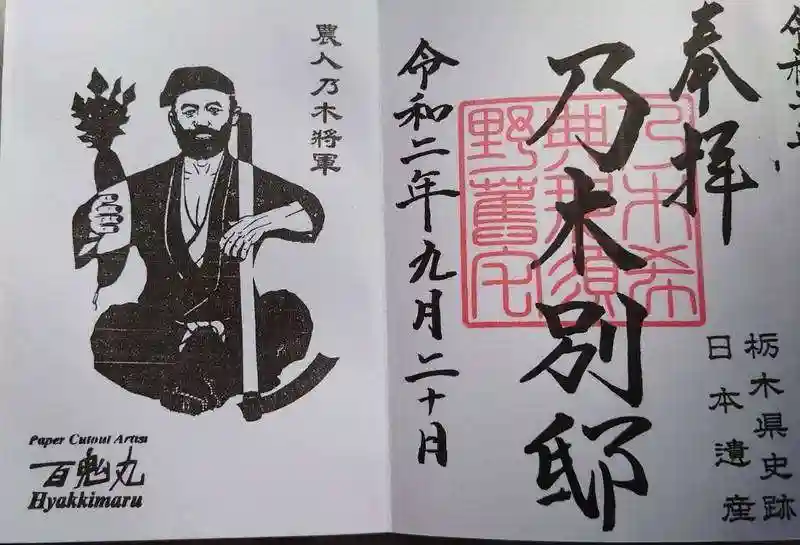 奉拝
乃木別邸
令和二年九月二十日
乃木希
典那須
野舊宅
栃木県史跡
日本遺産
農人乃木將軍
Paper Cutout Artist
百鬼丸
Hyakkimaru